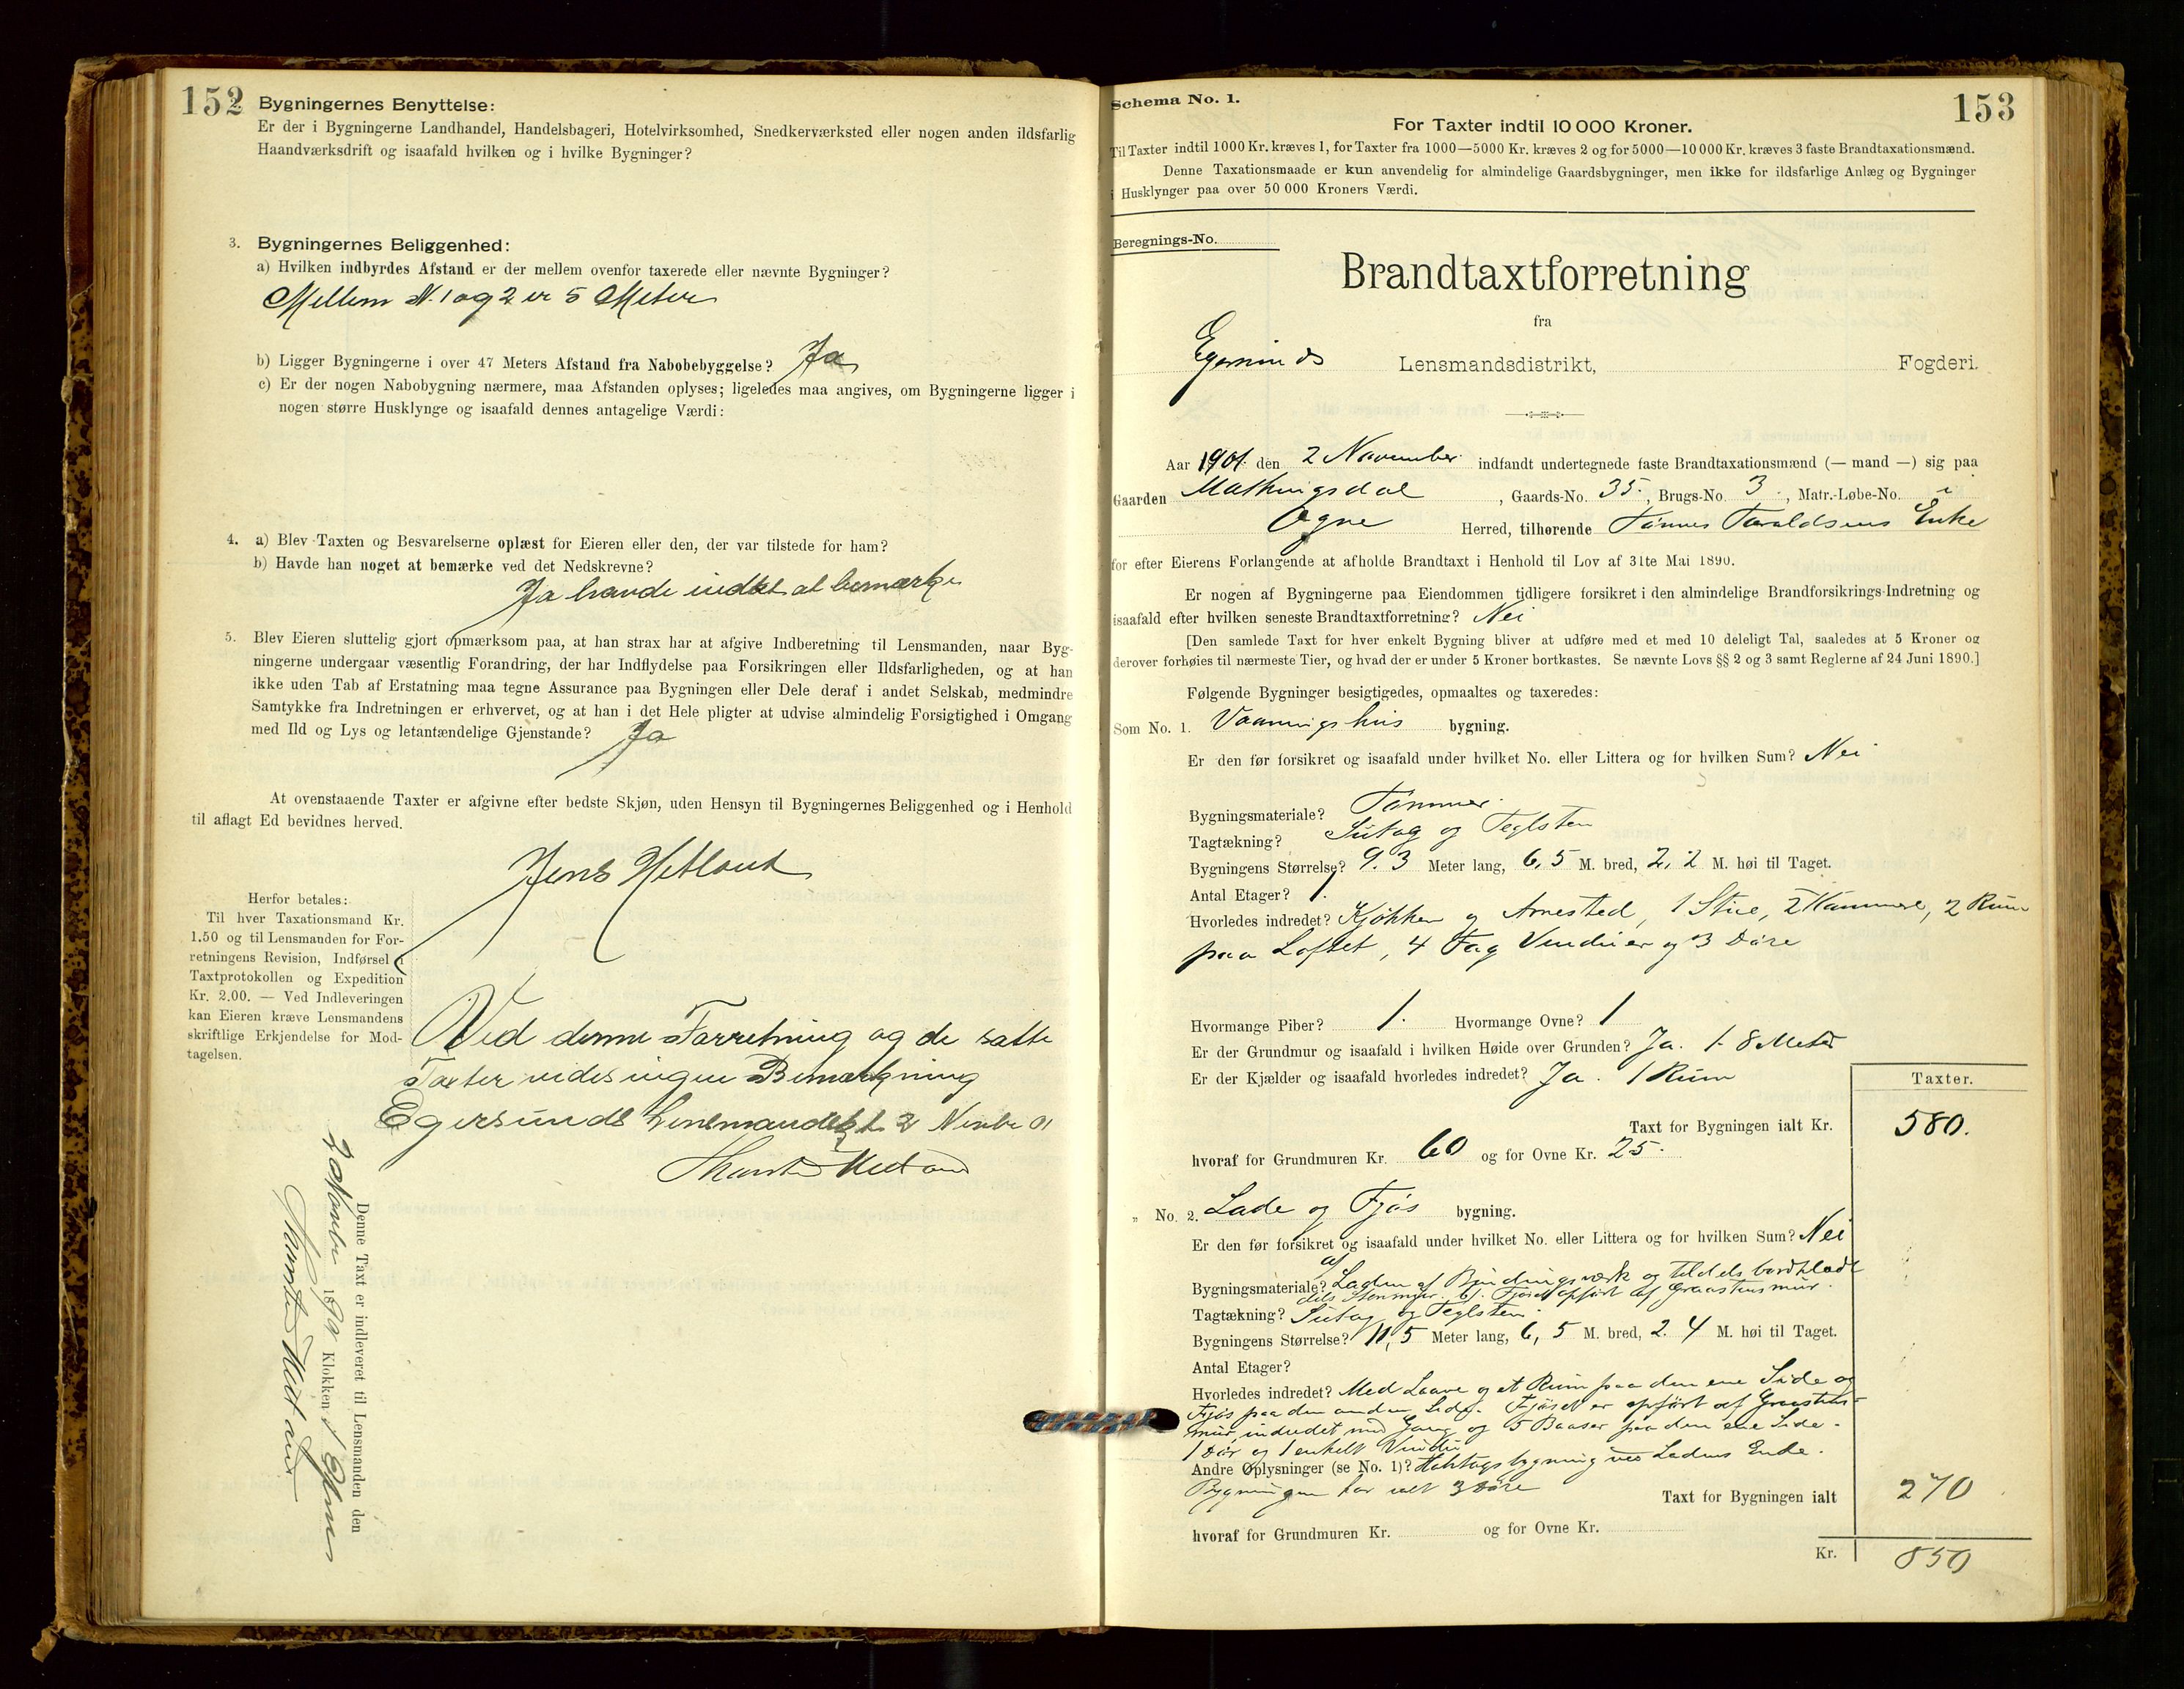 152
Bygningernes Benyttelse:
Er der i Bygningerne Landhandel, Handelsbageri, Hotelvirksomhed, Snedkerværksted eller nogen anden ildsfarlig
Haandværksdrift og isaafald hvilken og i hvilke Bygninger?
3. Bygningernes Beliggenhed:
a) Hvilken indbyrdes Afstand er der mellem ovenfor taxerede eller nævnte Bygninger?
Mellem N. 1 og 2 er 5 Meter
b) Ligger Bygningerne i over 47 Meters Afstand fra Nabobebyggelse? Ja
c) Er der nogen Nabobygning nærmere, maa Afstanden oplyses; ligeledes maa angives, om Bygningerne ligger i
nogen større Husklynge og isaafald dennes antagelige Værdi:
4. a) Blev Taxten og Besvarelserne oplæst for Eieren eller den, der var tilstede for ham?
b) Havde han noget at bemærke ved det Nedskrevne?
Ja havde indtet at bemærke
5. Blev Eieren sluttelig gjort opmærksom paa, at han strax har at afgive Indberetning til Lensmanden, naar Byg-
ningerne undergaar væsentlig Forandring, der har Indflydelse paa Forsikringen eller Ildsfarligheden, og at han
ikke uden Tab af Erstatning maa tegne Assurance paa Bygningen eller Dele deraf i andet Selskab, medmindre
Samtykke fra Indretningen er erhvervet, og at han i det Hele pligter at udvise almindelig Forsigtighed i Omgang
med Ild og Lys og letantændelige Gjenstande? Ja
At ovenstaaende Taxter er afgivne efter bedste Skjøn, uden Hensyn til Bygningernes Beliggenhed og i Henhold
til aflagt Ed bevidnes herved.
Jens Hetland
Herfor betales:
Til hver Taxationsmand Kr.
1.50 og til Lensmanden for For-
retningens Revision, Indførsel i
Taxtprotokollen og Expedition
Kr. 2.00. — Ved Indleveringen
kan Eieren kræve Lensmandens
skriftlige Erkjendelse for Mod-
tagelsen.
Ved denne Forretning og de satte
Taxter vides ingen Bemærkning
Egersunds 2 01
Denne Taxt er indleveret til Lensmanden den
2 Klokken
Schema No. 1.
153
For Taxter indtil 10 000 Kroner.
Til Taxter indtil 1000 Kr. kræves 1, for Taxter fra 1000—5000 Kr. kræves 2 og for 5000—10 000 Kr. kræves 3 faste Brandtaxationsmænd.
Denne Taxationsmaade er kun anvendelig for almindelige Gaardsbygninger, men ikke for ildsfarlige Anlæg og Bygninger
i Husklynger paa over 50 000 Kroners Værdi.
Beregnings-No.
Brandtaxtforretning
fra
Lensmandsdistrikt, Fogderi.
Aar 1901 den 2 November indfandt undertegnede faste Brandtaxationsmænd (— mand —) sig paa
Gaarden , Gaards-No. 35, Brugs-No. 3, Matr.-Løbe-No.
Ogne Herred, tilhørende Tønnes Taraldsens Enke
for efter Eierens Forlangende at afholde Brandtaxt i Henhold til Lov af 31te Mai 1890.
Er nogen af Bygningerne paa Eiendommen tidligere forsikret i den almindelige Brandforsikrings-Indretning og
isaafald efter hvilken seneste Brandtaxtforretning? Nei
[Den samlede Taxt for hver enkelt Bygning bliver at udføre med et med 10 deleligt Tal, saaledes at 5 Kroner og
derover forhøies til nærmeste Tier, og hvad der er under 5 Kroner bortkastes. Se nævnte Lovs §§ 2 og 3 samt Reglerne af 24 Juni 1890.]
Følgende Bygninger besigtigedes, opmaaltes og taxeredes:
Som No. 1. Vaaningshus bygning.
Er den før forsikret og isaafald under hvilket No. eller Littera og for hvilken Sum? Nei
Bygningsmateriale? Tømmer
Tagtækning? Sutag og Teglsten
Bygningens Størrelse? 9.3 Meter lang, 6,5 M. bred, 2,2 M. høi til Taget.
Antal Etager? 1.
Hvorledes indredet? Kjøkken og Arnested, 1 Stue, 2 Kammere, 2 Rum
paa Loftet, 4 Fag Vinduer og 3 Døre
Hvormange Piber? 1. Hvormange Ovne? 1
Er der Grundmur og isaafald i hvilken Høide over Grunden? Ja. 1.8 Meter
Er der Kjælder og isaafald hvorledes indredet? Ja. 1 Rum
Taxter.
Taxt for Bygningen ialt Kr. 580.
hvoraf for Grundmuren Kr. 60 og for Ovne Kr. 25.
" No. 2. Lade og Fjøs bygning.
Er den før forsikret og isaafald under hvilket No. eller Littera og for hvilken Sum? Nei
Bygningsmateriale? Laden af Bindingsværk og tildels bordklædt
dels Stenmur. Fjøset opført af Graastensmur.
Tagtækning? Sutag og Teglsten
Bygningens Størrelse? 11,5 Meter lang, 6,5 M. bred, 2.4 M. høi til Taget.
Antal Etager?
Hvorledes indredet? Med Laave og et Rum paa den ene Side og
Fjøs paa den anden Side. Fjøset er opført af Graastens-
mur, indredet med Gang og 5 Baaser paa den ene Side.
1 Dør og 1 enkelt Vindu
Andre Oplysninger (se No. 1)? Halvtagsbygning ved Ladens Ende.
Bygningen har ialt 3 Døre Taxt for Bygningen ialt 270
hvoraf for Grundmuren Kr. og for Ovne Kr.
Kr. 850